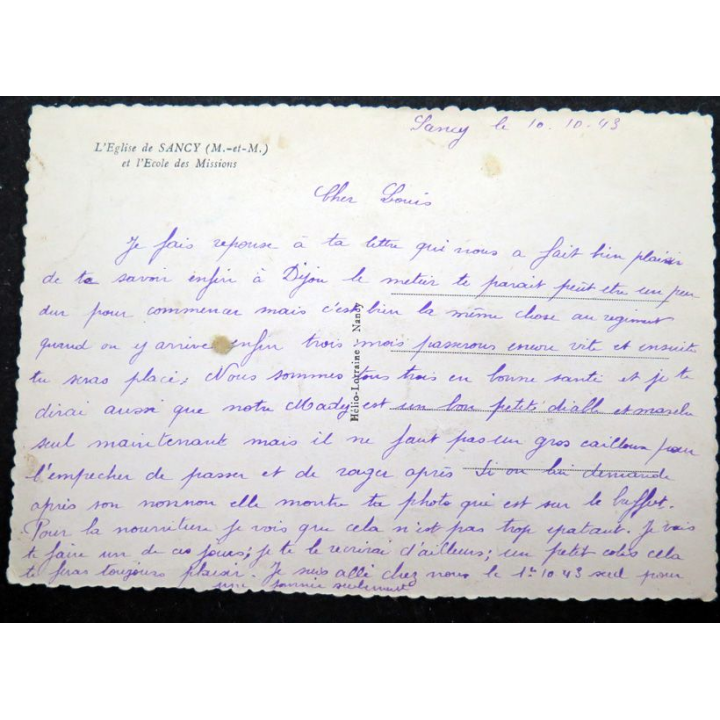 L'Eglise de SANCY (M.-et-M.)
et l'Ecole des Missions
Sancy le 10.10.43
Cher Louis
Je fais reponse à ta lettre qui nous a fait bien plaisir
de te savoir enfin à Dijon le metier te parait peut etre un peu
dur pour commencer mais c'est bien la même chose au regiment
quand on y arrive enfin trois mois passerons encore vite et ensuite
tu seras placé; Nous sommes tous trois en bonne santé et je te
dirai aussi que notre Mady est un bon petits diable et marche
seul maintenant mais il ne faut pas un gros cailloux pour
l'empecher de passer et de rager après Si on lui demande
après son nonnon elle montre ta photo qui est sur le buffet.
Pour la nourriture je vois que cela n'est pas trop epatant. Je vais
t faire un de ces jours; je te le recrirai d'ailleurs; un petit colis cela
te feras toujours plaisir. Je suis allé chez nous le 1er 10 43 seul pour
une seulement
Hélio-Lorraine Nancy